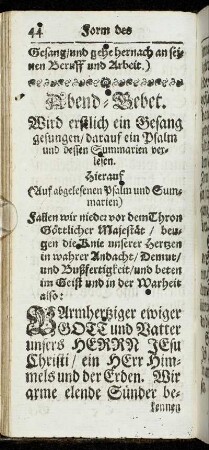 44 Form des
Gesang/und gehe hernach an sei-
nen Beruff und Arbeit.)
Abend-Gebet.
Wird erstlich ein Gesang
gesungen/darauf ein Psalm
und dessen Summarien ver-
lesen.
Hierauf
(Auf abgelesenen Psalm und Sum-
marien)
Fallen wir nieder vor dem Thron
Göttlicher Majestät/ beu-
gen die Knie unserer Hertzen
in wahrer Andacht/ Demut/
und Bußfertigkeit/und beten
im Geist und in der Warheit
also:
BArmhertziger ewiger
GOTT und Vatter
unsers HERRN JESu
Christi/ ein HErr Him-
mels und der Erden. Wir
arme elende Sünder be-
kennen